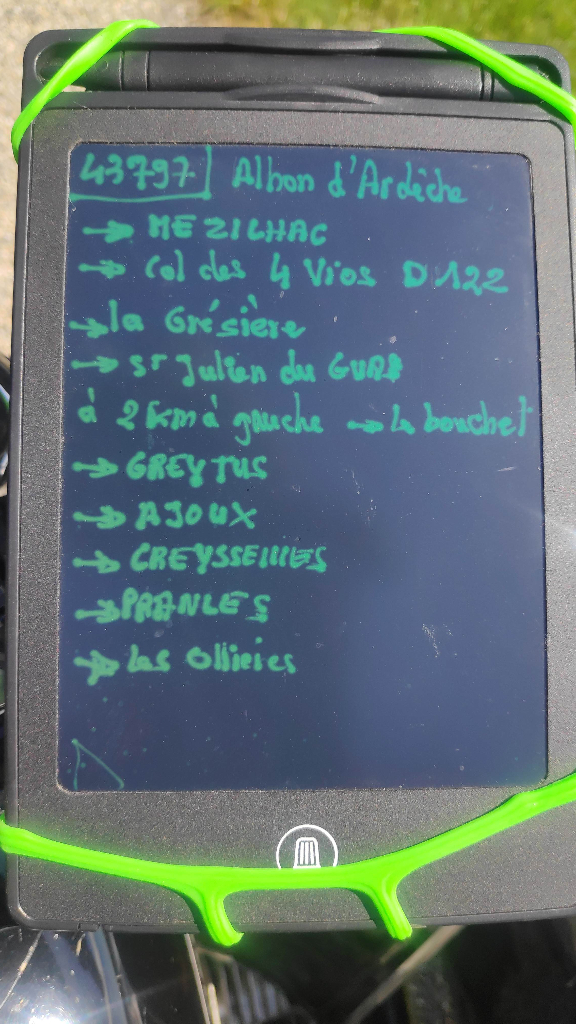 43797 Albon d'Ardèche
→ MEZILHAC
→ Col des 4 Vios D122
→ la Grésière
→ ST Julien du GUA
à 2 km à gauche → le bouchet
→ GREYTUS
→ AJOUX
→ CREYSSEILLES
→ PRANLES
→ Les Ollieies